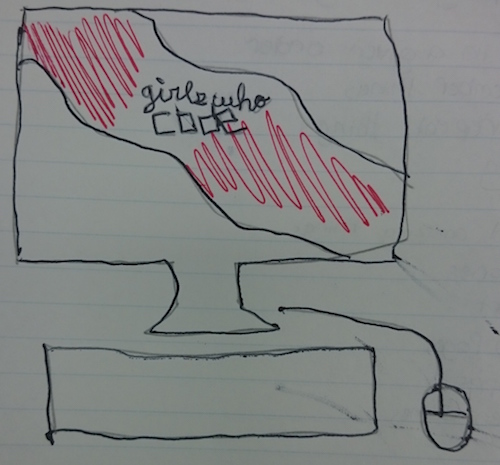 girls who
CODE